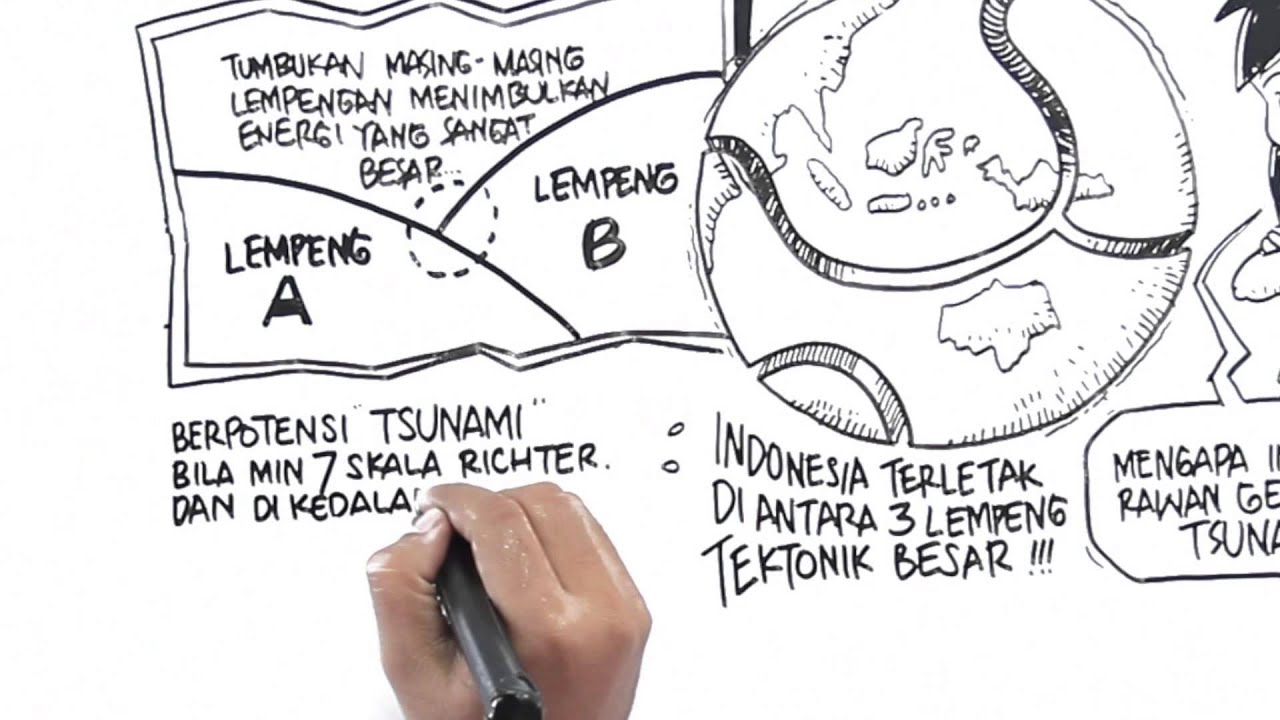 TUMBUKAN MASING-MASING
LEMPENGAN MENIMBULKAN
ENERGI YANG SANGAT
BESAR...
LEMPENG
A
LEMPENG
B
BERPOTENSI "TSUNAMI"
BILA MIN 7 SKALA RICHTER.
DAN DI
INDONESIA TERLETAK
DI ANTARA 3 LEMPENG
TEKTONIK BESAR !!!
MENGAPA
RAWAN